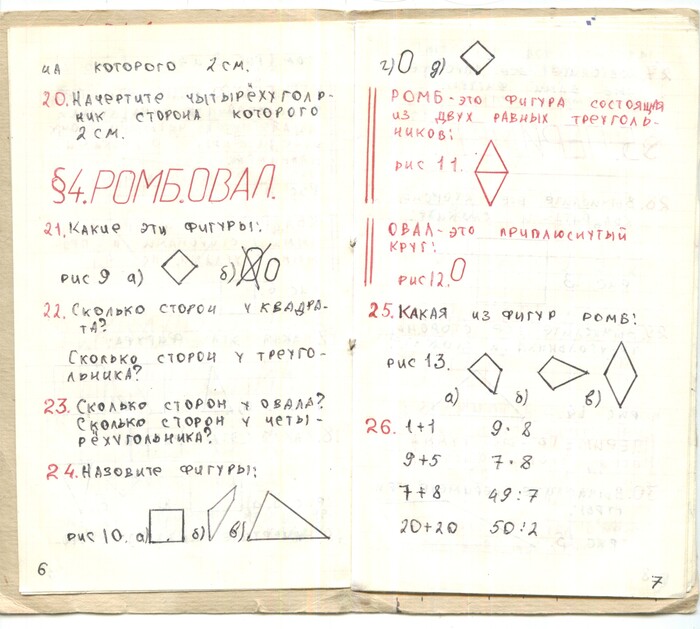 на которого 2 см.
20. Начертите чытырёхуголь-
ник сторона которого
2 см.
§4. РОМБ. ОВАЛ.
21. Какие эти фигуры:
рис 9 а) б)
22. Сколько сторон у квадра-
та?
Сколько сторон у треуго-
льника?
23. Сколько сторон у овала?
Сколько сторон у четы-
рёхугольника?
24. Назовите фигуры:
рис 10. а) б) в)
6
г) д)
Ромб - это фигура состоящия
из двух равных треуголь-
ников:
рис 11.
Овал - это приплюснутый
круг:
рис 12.
25. Какая из фигур ромб:
рис 13.
а) б) в)
26. 1+1 9·8
9+5 7·8
7+8 49:7
20+20 50:2
7